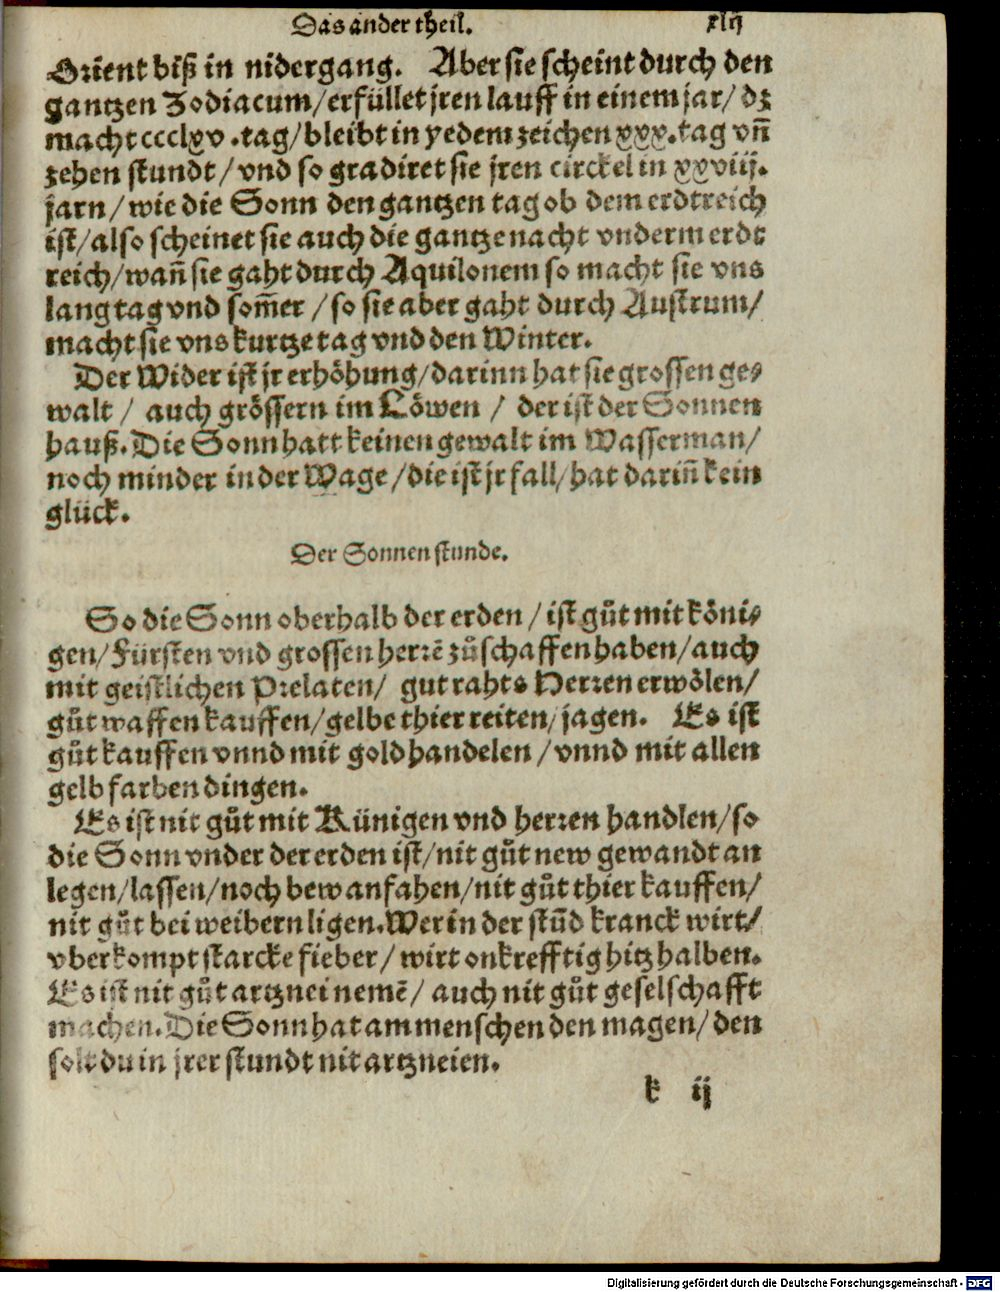 Das ander theil. xlij
Orient biß in nidergang. Aber sie scheint durch den
gantzen Zodiacum/erfüllet jren lauff in einem jar/dz
macht ccclxv.tag/bleibt in yedem zeichen xxx.tag vn̄
zehen stundt/vnd so gradiret sie jren circkel in xxviij.
jarn/wie die Sonn den gantzen tag ob dem erdtreich
ist/also scheinet sie auch die gantze nacht vnderm erdt
reich/wan̄ sie gaht durch Aquilonem so macht sie vns
lang tag vnd som̄er/so sie aber gaht durch Austrum/
macht sie vns kurtze tag vnd den Winter.
Der Wider ist jr erhöhung/darinn hat sie grossen ge⸗
walt/ auch grössern im Löwen/ der ist der Sonnen
hauß. Die Sonn hatt keinen gewalt im Wasserman/
noch minder in der Wage/die ist jr fall/hat darin̄ kein
glück.
Der Sonnen stunde.
So die Sonn oberhalb der erden/ist gůt mit köni⸗
gen/Fürsten vnd grossen herrē zůschaffen haben/auch
mit geistlichen Prelaten/ gut rahts Herren erwölen/
gůt waffen kauffen/gelbe thier reiten/jagen. Es ist
gůt kauffen vnnd mit gold handelen/vnnd mit allen
gelb farben dingen.
Es ist nit gůt mit Künigen vnd herren handlen/so
die Sonn vnder der erden ist/nit gůt new gewandt an
legen/lassen/noch bew anfahen/nit gůt thier kauffen/
nit gůt bei weibern ligen. Wer in der stūd kranck wirt/
vberkompt starcke fieber/wirt onkrefftig hitz halben.
Es ist nit gůt artznei nemē/ auch nit gůt geselschafft
machen. Die Sonn hat am menschen den magen/den
solt du in jrer stundt nit artzneien.
k ij
Digitalisierung gefördert durch die Deutsche Forschungsgemeinschaft - DFG